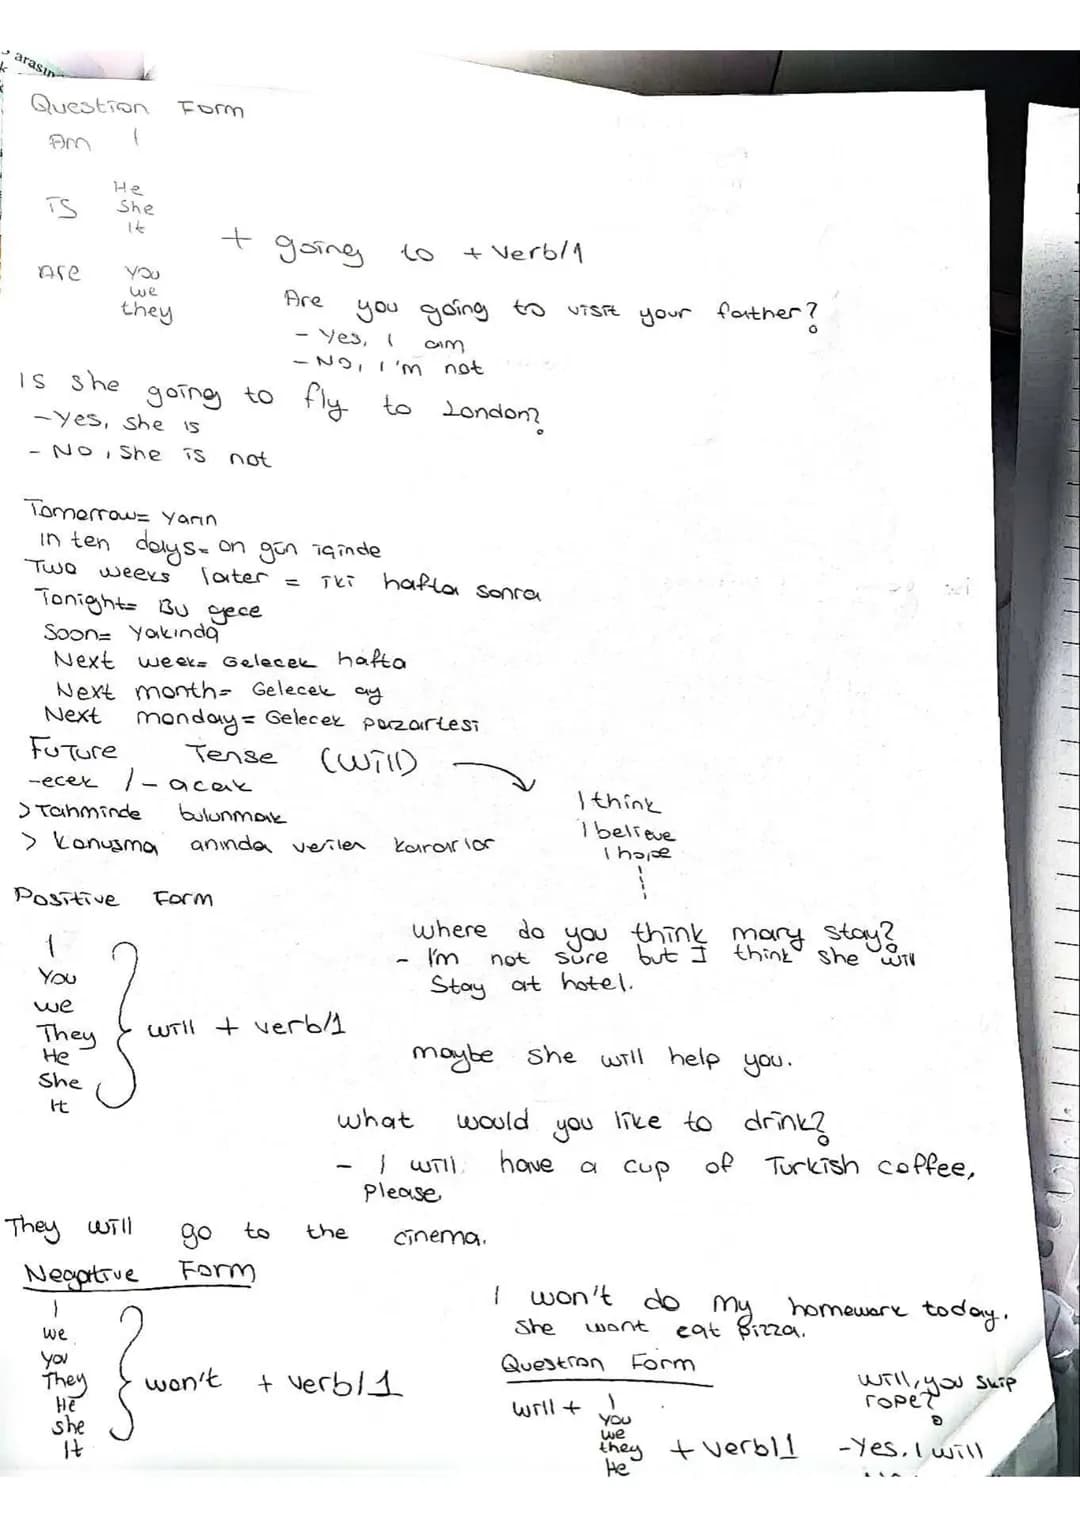 arasın
Question Form
Am I
He
Is She
It
+ going to + Verb/1
Are you
we
they
Are you going to visit your father?
- Yes, I am
- No, I'm not
Is she going to fly to London?
- Yes, she is
- No, She is not
Tomorrow= Yarın
in ten days= on gün içinde
Two weeks later = iki hafta sonra
Tonight= Bu gece
Soon= Yakında
Next week= Gelecek hafta
Next month= Gelecek ay
Next monday= Gelecek pazartesi
Future Tense (Will)
-ecek / -acak
> Tahminde bulunmak
> Konuşma anında verilen kararlar
I think
I believe
I hope
Positive Form
I
You
we
They
He
She
It
will + verb/1
where do you think mary stay?
- I'm not sure but I think she will
Stay at hotel.
maybe she will help you.
what would you like to drink?
- I will have a cup of Turkish coffee,
Please,
They will go to the cinema.
Negative Form
I
we
you
They
He
she
It
won't + verb/1
I won't do my homework today.
She wont eat pizza.
Question Form
will + I
you
we
they
He
+ verb/1
will, you skip
rope?
-Yes, I will